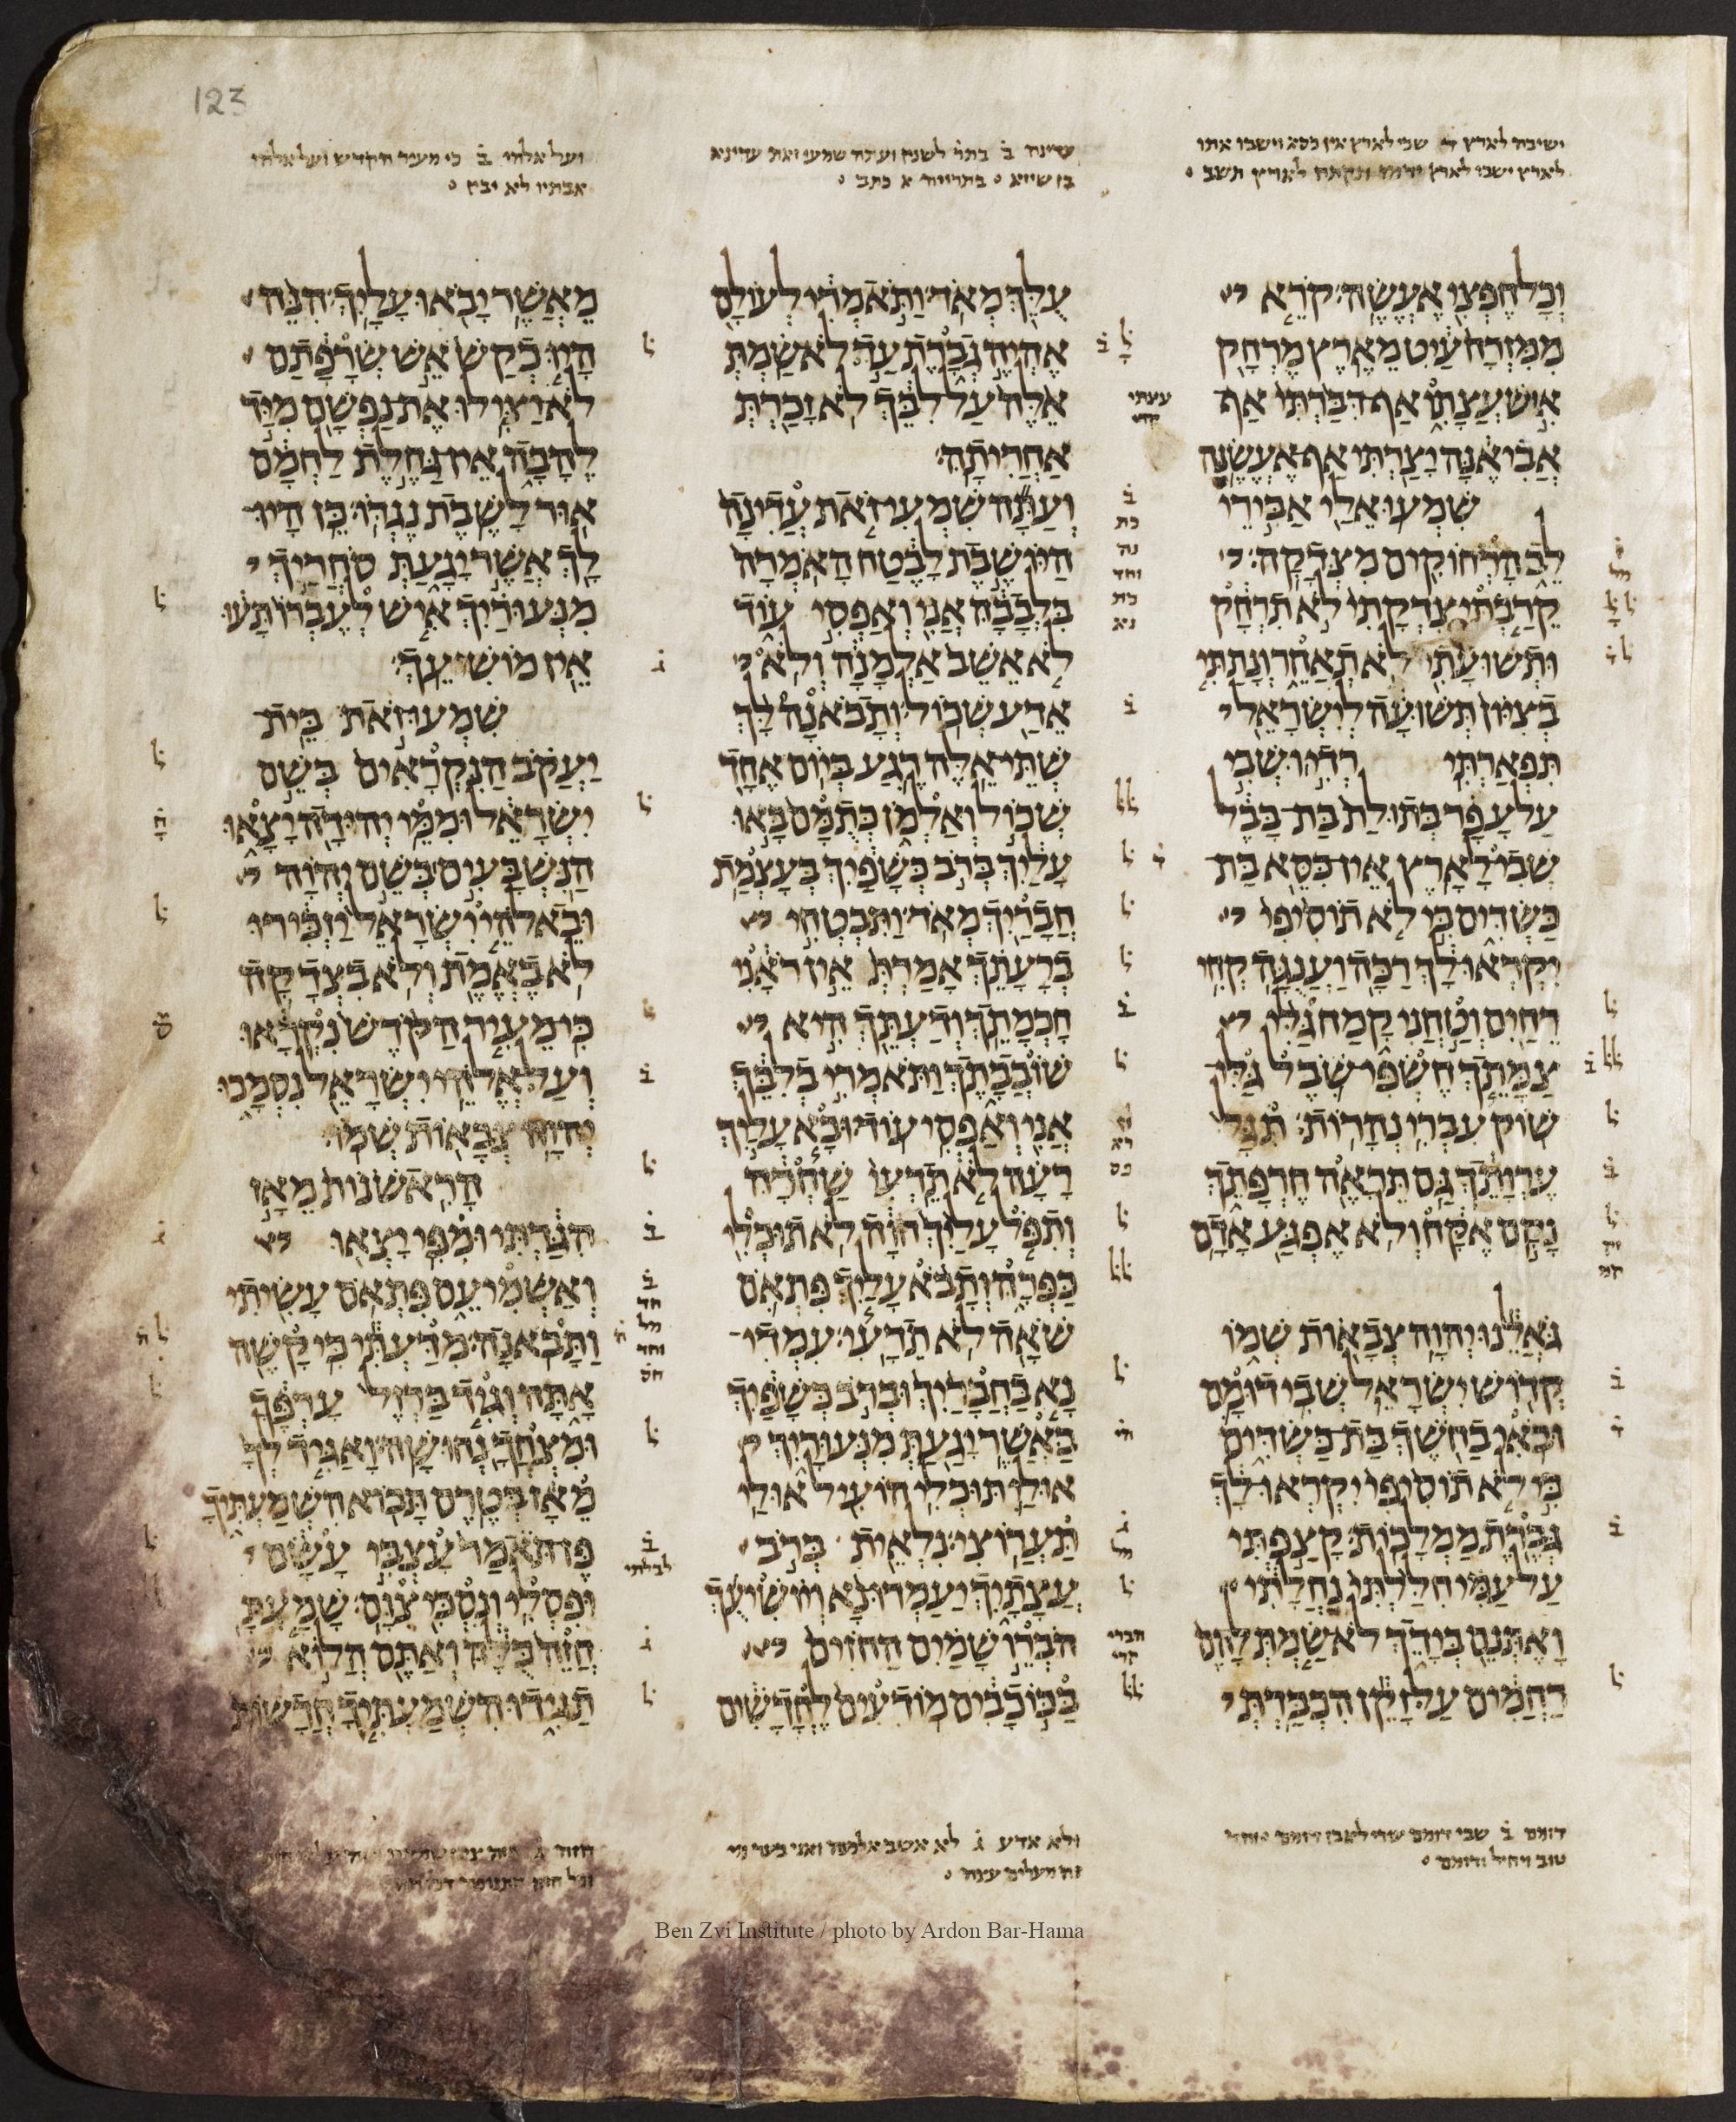 123
ישיבה לארץ ד שבי לארץ אין כסא וישבו אתו
לארץ ישבו לארץ ידמו ונקתה לארץ תשב
עדינה ב בתר לשנה ועתה שמעי זאת עדינה
בן שיזא בתרייה א כתב
ועל אלהי ב כי מעיר הקדש ועל אלהי
אבתיו לא יבין
וכל חפצי אעשה קרא
ממזרח עיט מארץ מרחק
איש עצתו אף דברתי אף
אביאנה יצרתי אף אעשנה
שמעו אלי אבירי
לב הרחוקים מצדקה
קרבתי צדקתי לא תרחק
ותשועתי לא תאחר ונתתי
בציון תשועה לישראל
תפארתי רדי ושבי
על עפר בתולת בת בבל
שבי לארץ אין כסא בת
כשדים כי לא תוסיפי
יקראו לך רכה וענגה קחי
רחים וטחני קמח גלי
צמתך חשפי שבל גלי
שוק עברי נהרות תגל
ערותך גם תראה חרפתך
נקם אקח ולא אפגע אדם
גאלנו יהוה צבאות שמו
קדוש ישראל שבי דומם
ובאי בחשך בת כשדים
כי לא תוסיפי יקראו לך
גברת ממלכות קצפתי
על עמי חללתי נחלתי
ואתנם בידך לא שמת להם
רחמים על זקן הכבדת
עלך מאד ותאמרי לעולם
אהיה גברת עד לא שמת
אלה על לבך לא זכרת
אחריתה
ועתה שמעי זאת עדינה
היושבת לבטח האמרה
בלבבה אני ואפסי עוד
לא אשב אלמנה ולא
אדע שכול ותבאנה לך
שתי אלה רגע ביום אחד
שכול ואלמן כתמם באו
עליך ברב כשפיך בעצמת
חבריך מאד ותבטחי
ברעתך אמרת אין ראני
חכמתך ודעתך היא
שובבתך ותאמרי בלבך
אני ואפסי עוד ובא עליך
רעה לא תדעי שחרה
ותפל עליך הוה לא תוכלי
כפרה ותבא עליך פתאם
שאה לא תדעי עמדי
נא בחבריך וברב כשפיך
באשר יגעת מנעוריך
אולי תוכלי הועיל אולי
תערוצי נלאית ברב
עצתיך יעמדו נא ויושיעך
הברו שמים החזים
בכוכבים מודעים לחדשים
מאשר יבאו עליך הנה
היו כקש אש שרפתם
לא יצילו את נפשם מיד
להבה אין גחלת לחמם
אור לשבת נגדו כן היו
לך אשר יגעת סחריך
מנעוריך איש לעברו תעו
אין מושיעך
שמעו זאת בית
יעקב הנקראים בשם
ישראל וממי יהודה יצאו
הנשבעים בשם יהוה
ובאלהי ישראל יזכירו
לא באמת ולא בצדקה
כי מעיר הקדש נקראו
ועל אלהי ישראל נסמכו
יהוה צבאות שמו
הראשנות מאז
הגדתי ומפי יצאו
ואשמיעם פתאם עשיתי
ותבאנה מדעתי כי קשה
אתה וגיד ברזל ערפך
ומצחך נחושה ואגיד לך
מאז בטרם תבוא השמעתיך
פן תאמר עצבי עשם
ופסלי ונסכי צום שמעת
חזה כלה ואתם הלוא
תגידו השמעתיך חדשות
דומם ב שבי דומם עורי לאבן דומם
טוב ויחיל ודומם
ולא אדע ג לא אשב אלמנה ואני בער
Ben Zvi Institute / photo by Ardon Bar-Hama